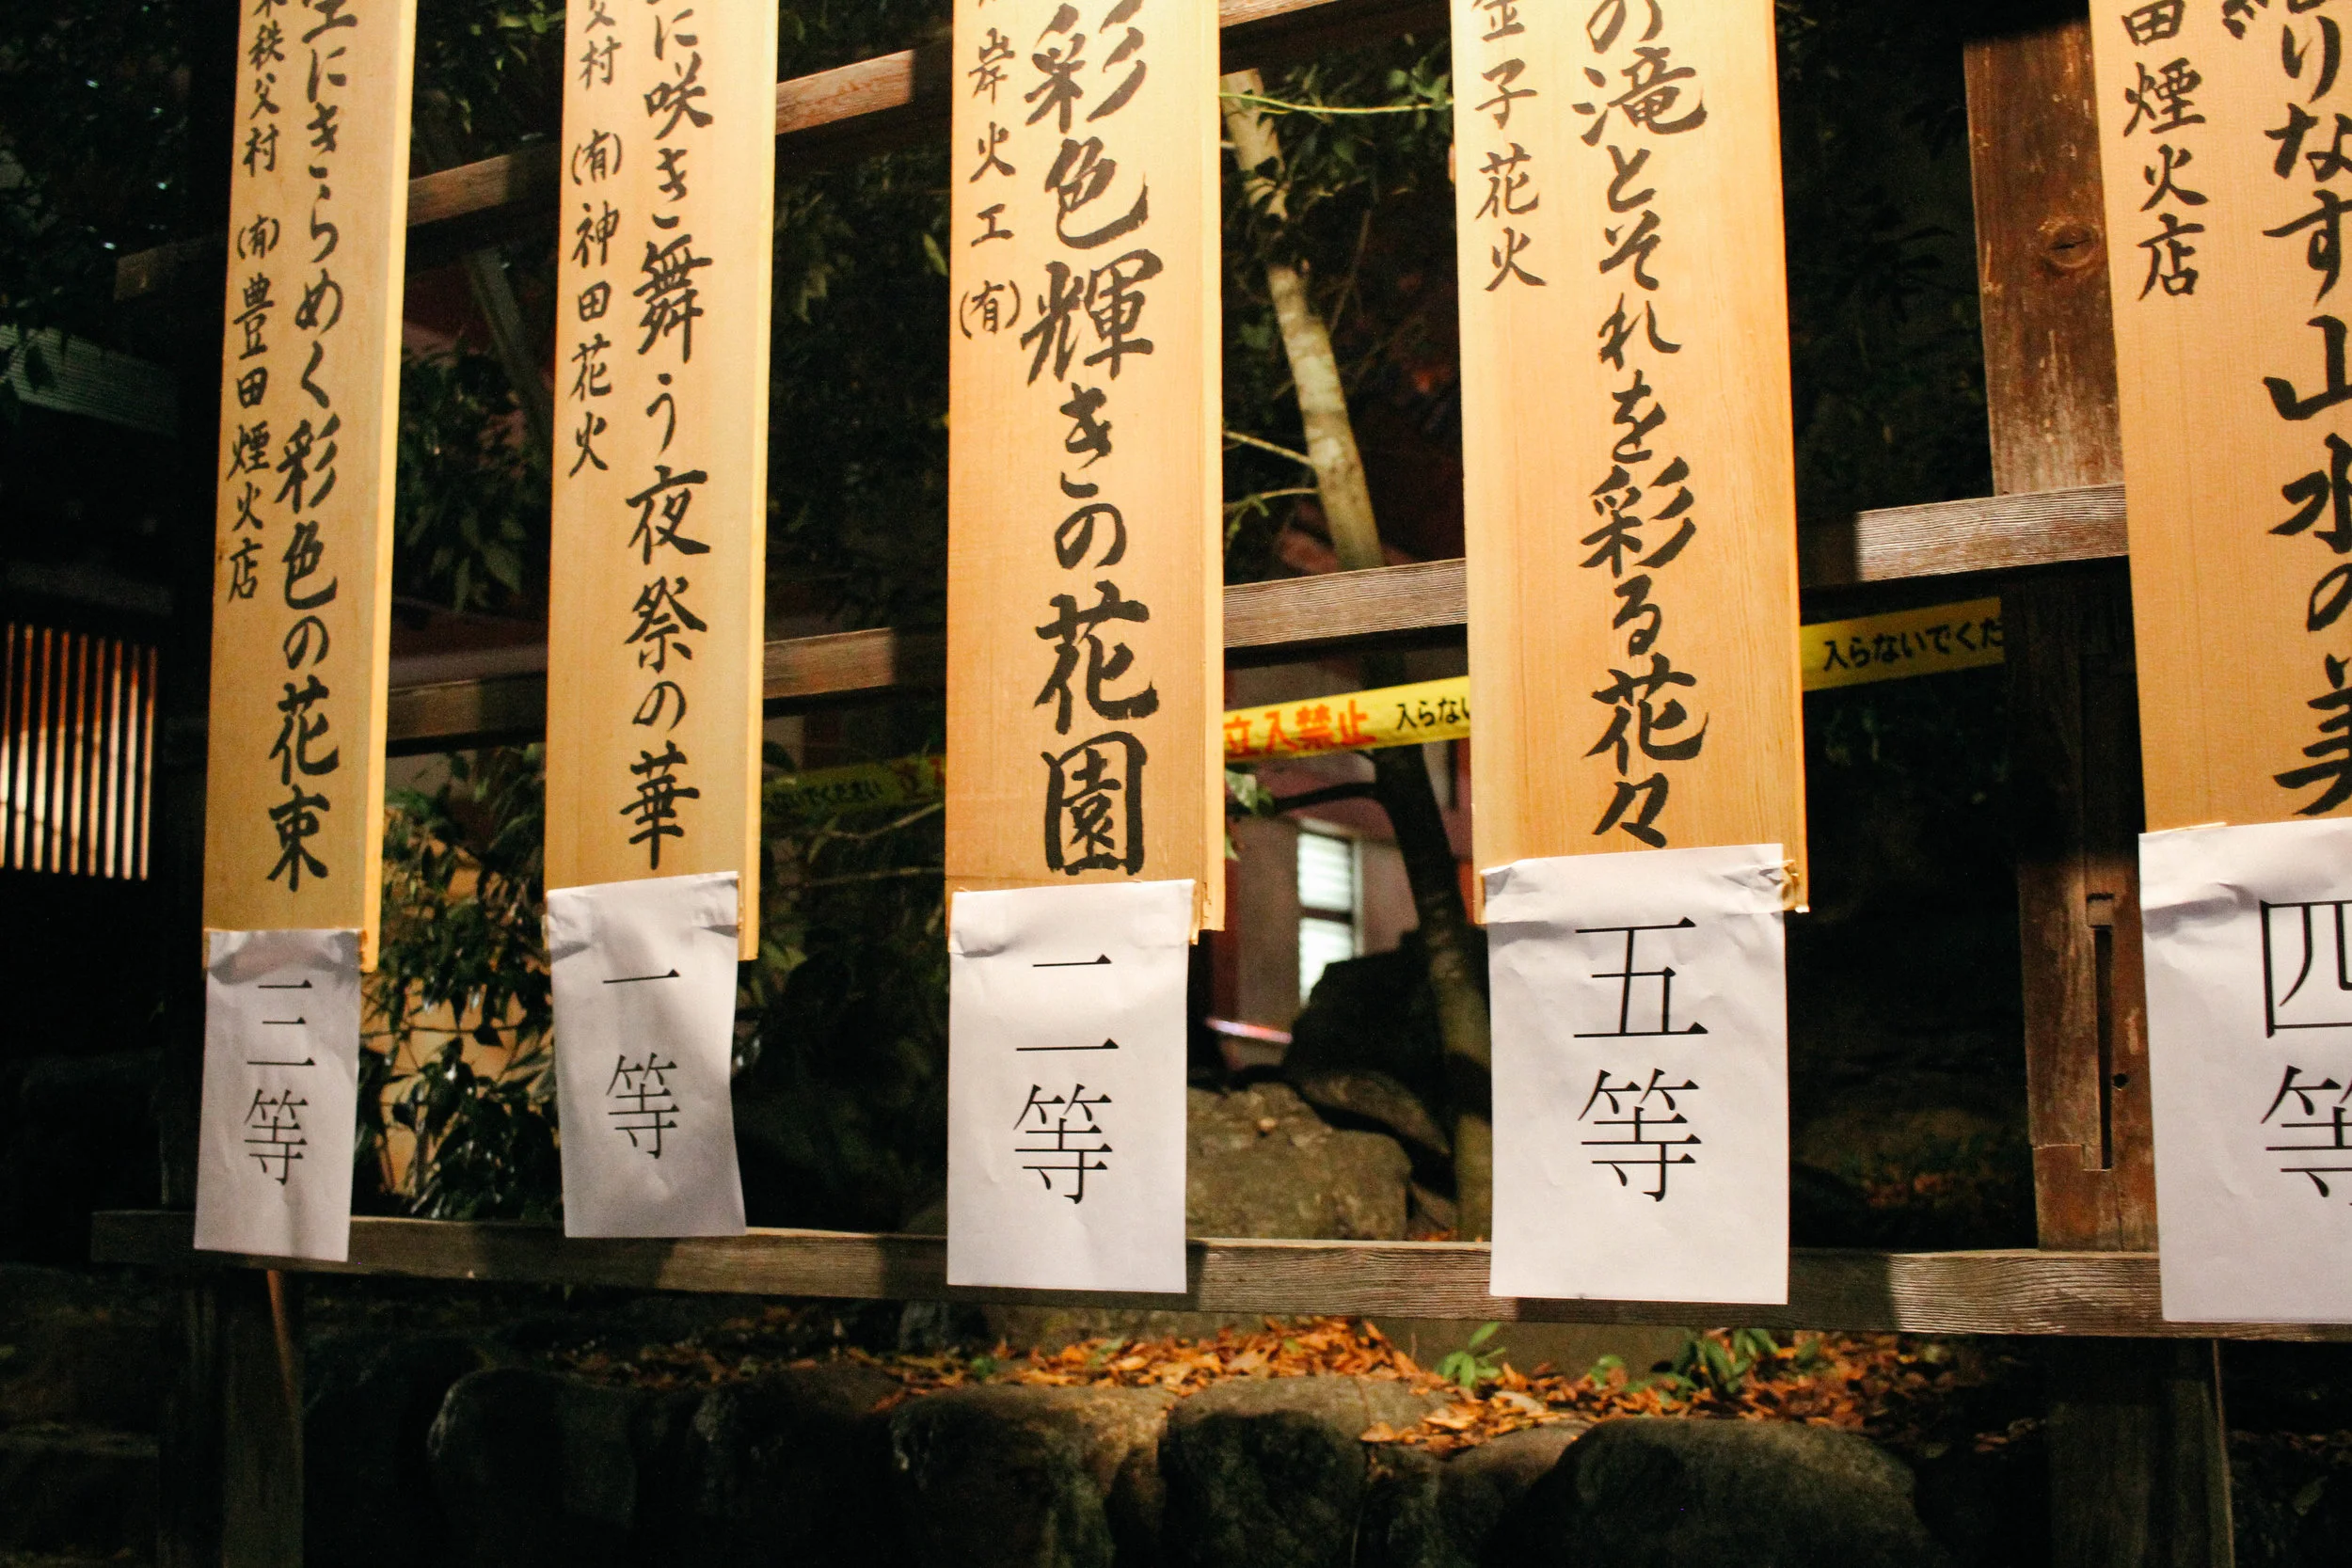 りなす山水の美
田煙火店
四等
の滝とそれを彩る花々
金子花火
五等
彩色輝きの花園
岸火工(有)
二等
に咲き舞う夜祭の華
父村 (有)神田花火
一等
空にきらめく彩色の花束
秩父村 (有)豊田煙火店
三等
立入禁止 入らない
入らないでくだ
ないでください